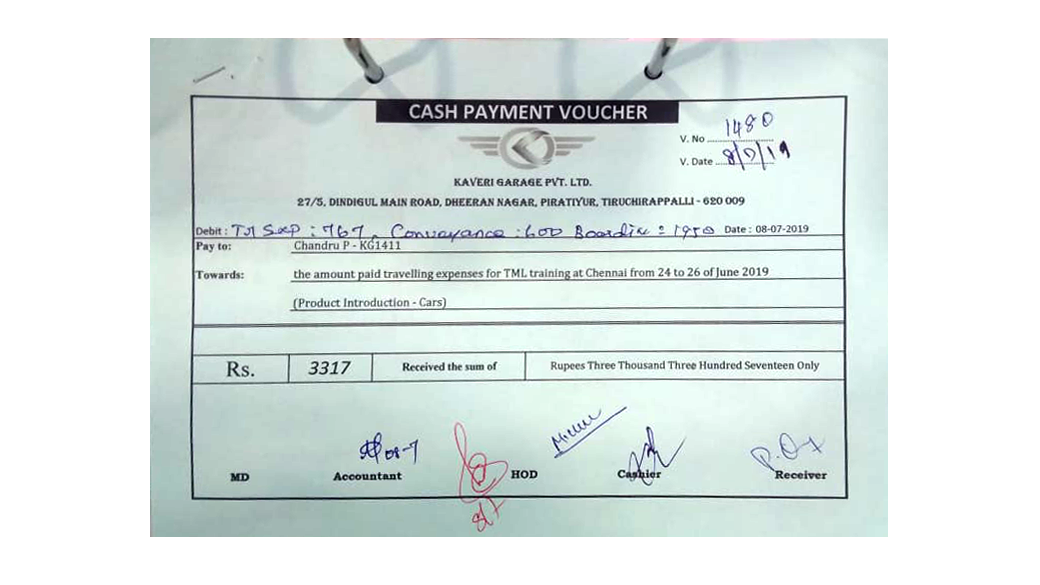 CASH PAYMENT VOUCHER
V. No 1480
V. Date 8/7/19
KAVERI GARAGE PVT. LTD.
27/5, DINDIGUL MAIN ROAD, DHEERAN NAGAR, PIRATIYUR, TIRUCHIRAPPALLI - 620 009
Debit : : 767, Conveyance : 600 : 1950 Date : 08-07-2019
Pay to: Chandru P - KG1411
Towards: the amount paid travelling expenses for TML training at Chennai from 24 to 26 of June 2019
(Product Introduction - Cars)
Rs. 3317 Received the sum of Rupees Three Thousand Three Hundred Seventeen Only
08-7
MD Accountant HOD Cashier Receiver